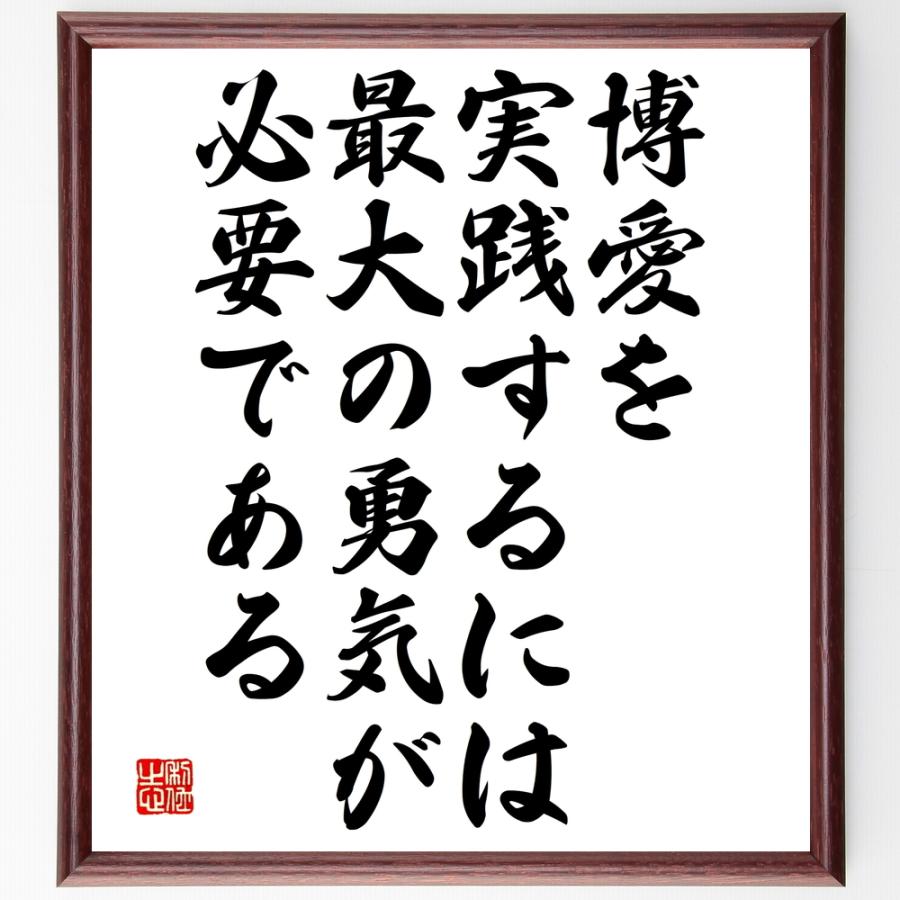 博愛を
実践するには
最大の勇気が
必要である